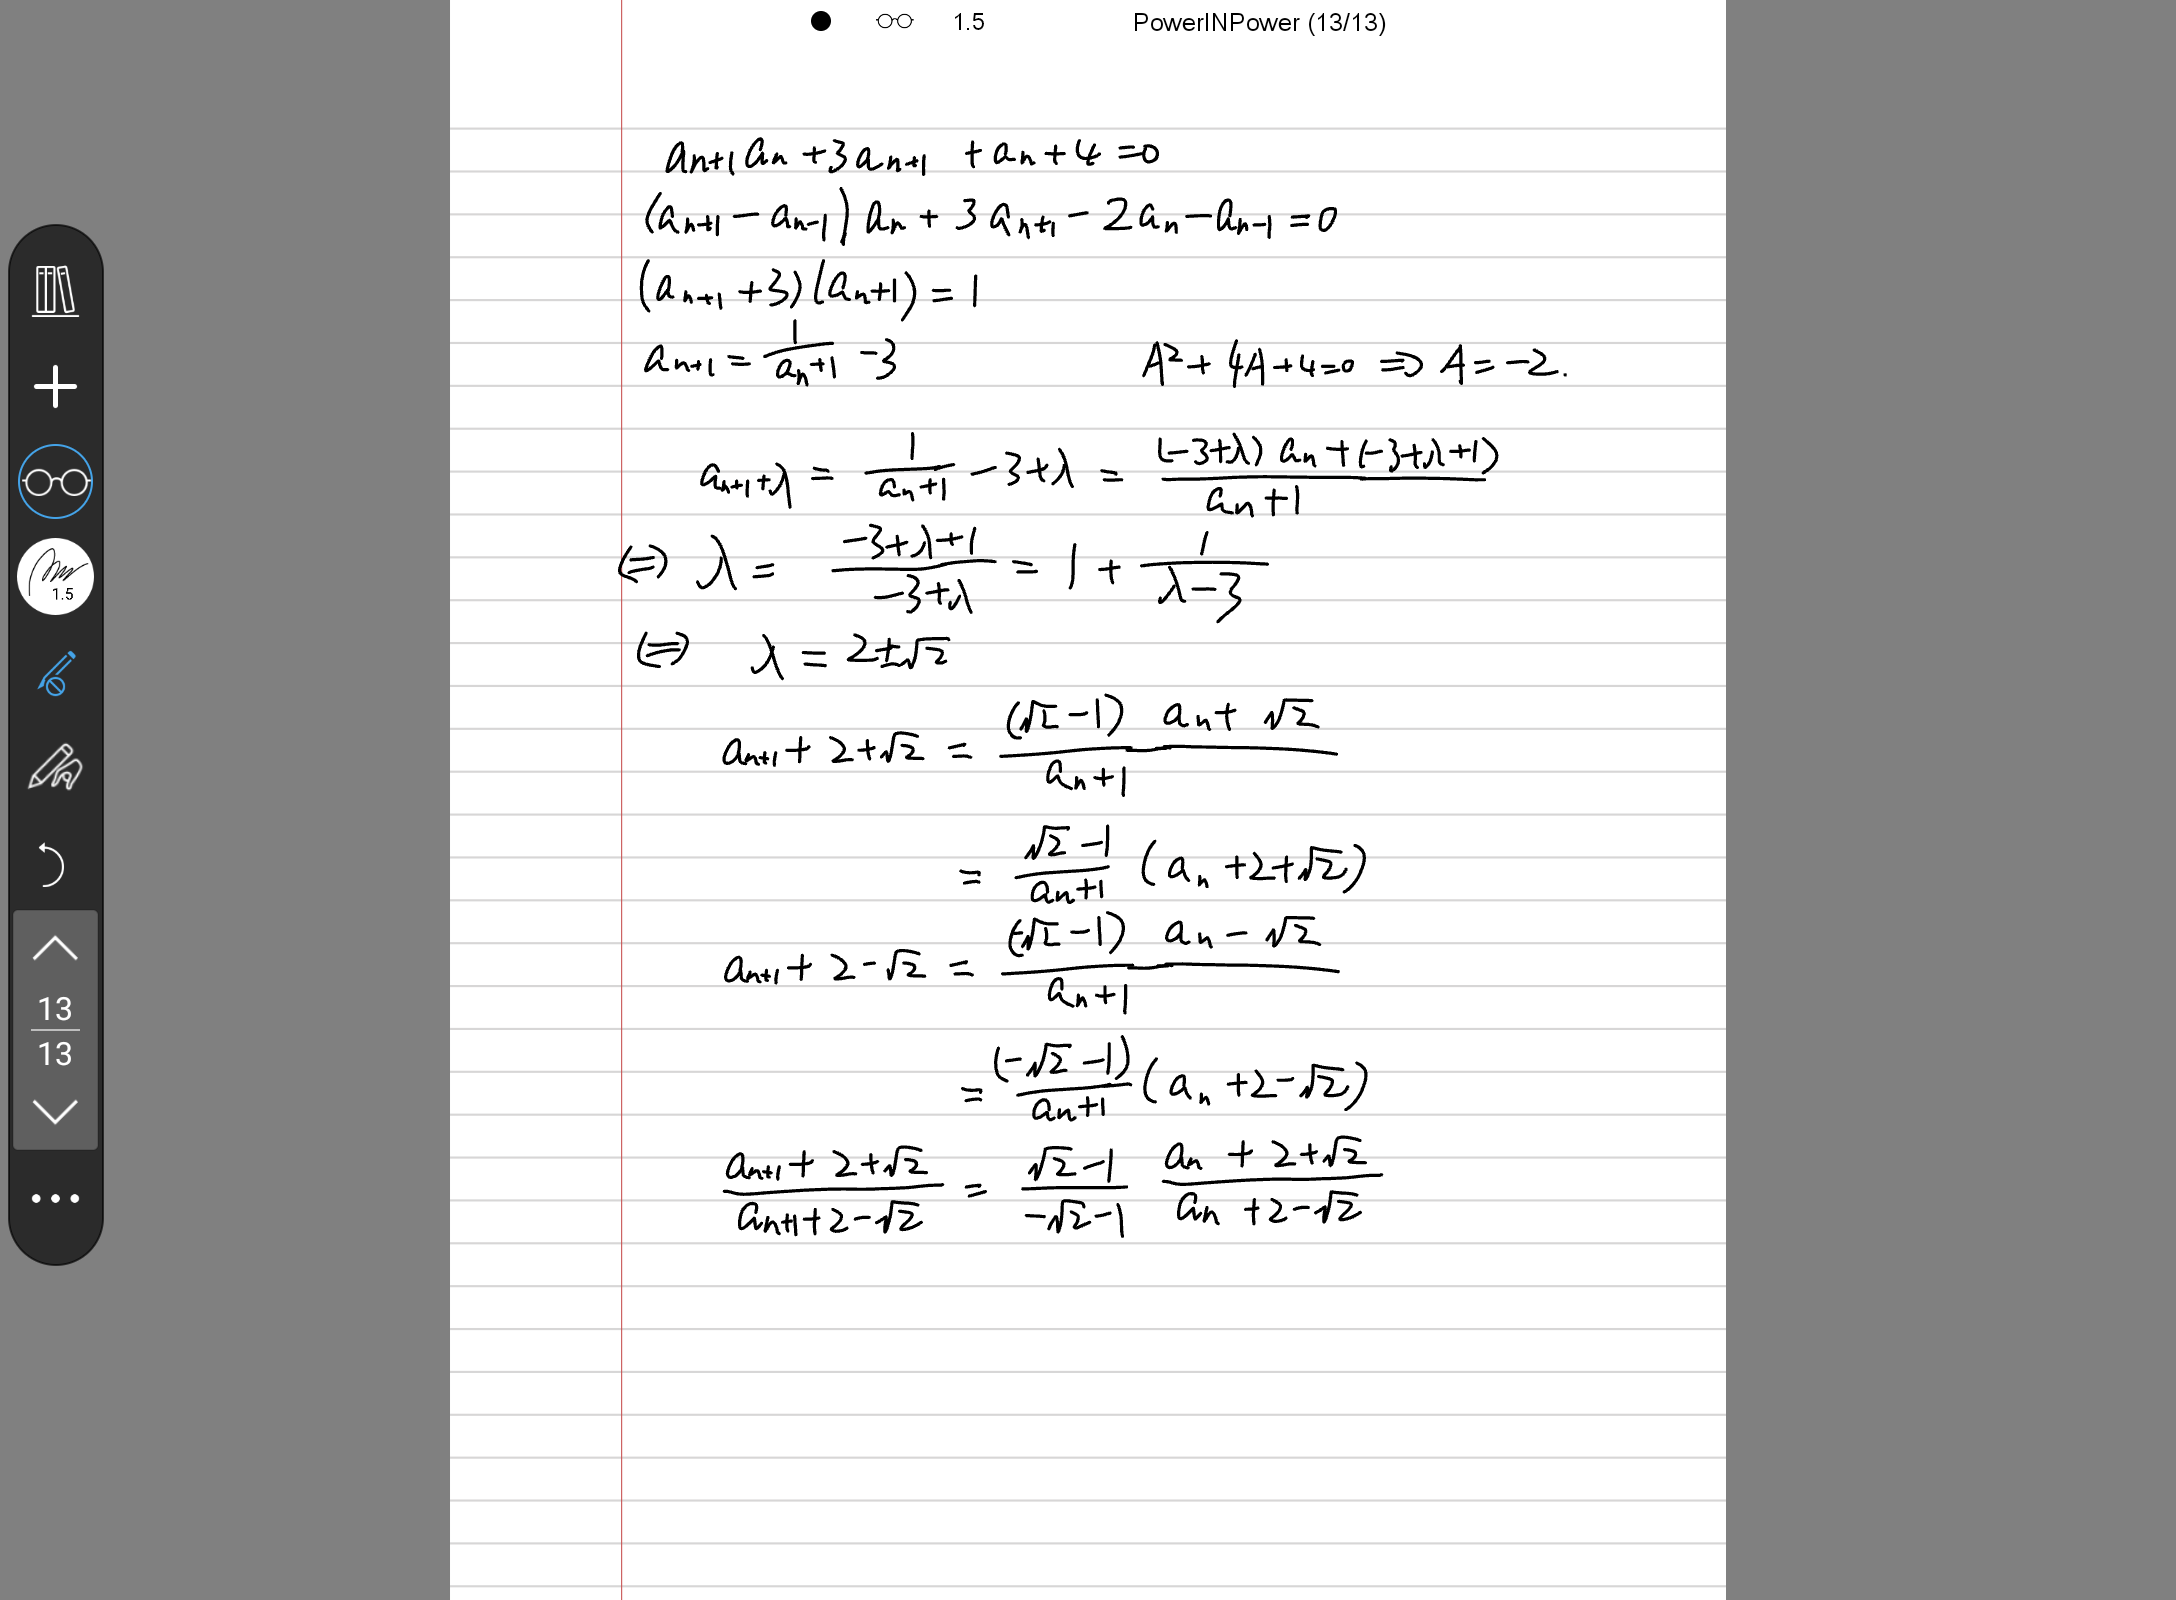 1.5 PowerINPower (13/13)
aₙ₊₁aₙ + 3aₙ₊₁ + aₙ + 4 = 0
(aₙ₊₁ − aₙ₋₁)aₙ + 3aₙ₊₁ − 2aₙ − aₙ₋₁ = 0
(aₙ₊₁ + 3)(aₙ+1) = 1
aₙ₊₁ = 1/(aₙ+1) − 3    A² + 4A + 4 = 0 ⇒ A = −2.
aₙ₊₁+λ = 1/(aₙ+1) − 3+λ = ((−3+λ)aₙ + (−3+λ+1))/(aₙ+1)
⇔ λ = (−3+λ+1)/(−3+λ) = 1 + 1/(λ−3)
⇔ λ = 2±√2
aₙ₊₁ + 2+√2 = ((√2−1) aₙ + √2)/(aₙ+1)
= (√2−1)/(aₙ+1) (aₙ +2+√2)
aₙ₊₁ + 2−√2 = ((−√2−1) aₙ − √2)/(aₙ+1)
= (−√2−1)/(aₙ+1) (aₙ +2−√2)
(aₙ₊₁ + 2+√2)/(aₙ₊₁+2−√2) = (√2−1)/(−√2−1) (aₙ + 2+√2)/(aₙ +2−√2)
1.5
13
13